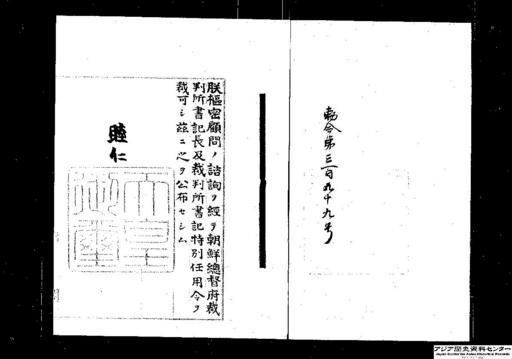 勅令第三百九十九号
朕樞密顧問ノ諮詢ヲ經テ朝鮮總督府裁
判所書記長及裁判所書記特別任用令ヲ
裁可シ茲ニ之ヲ公布セシム
睦仁
天皇
御璽
アジア歴史資料センター
Japan Center for Asian Historical Records